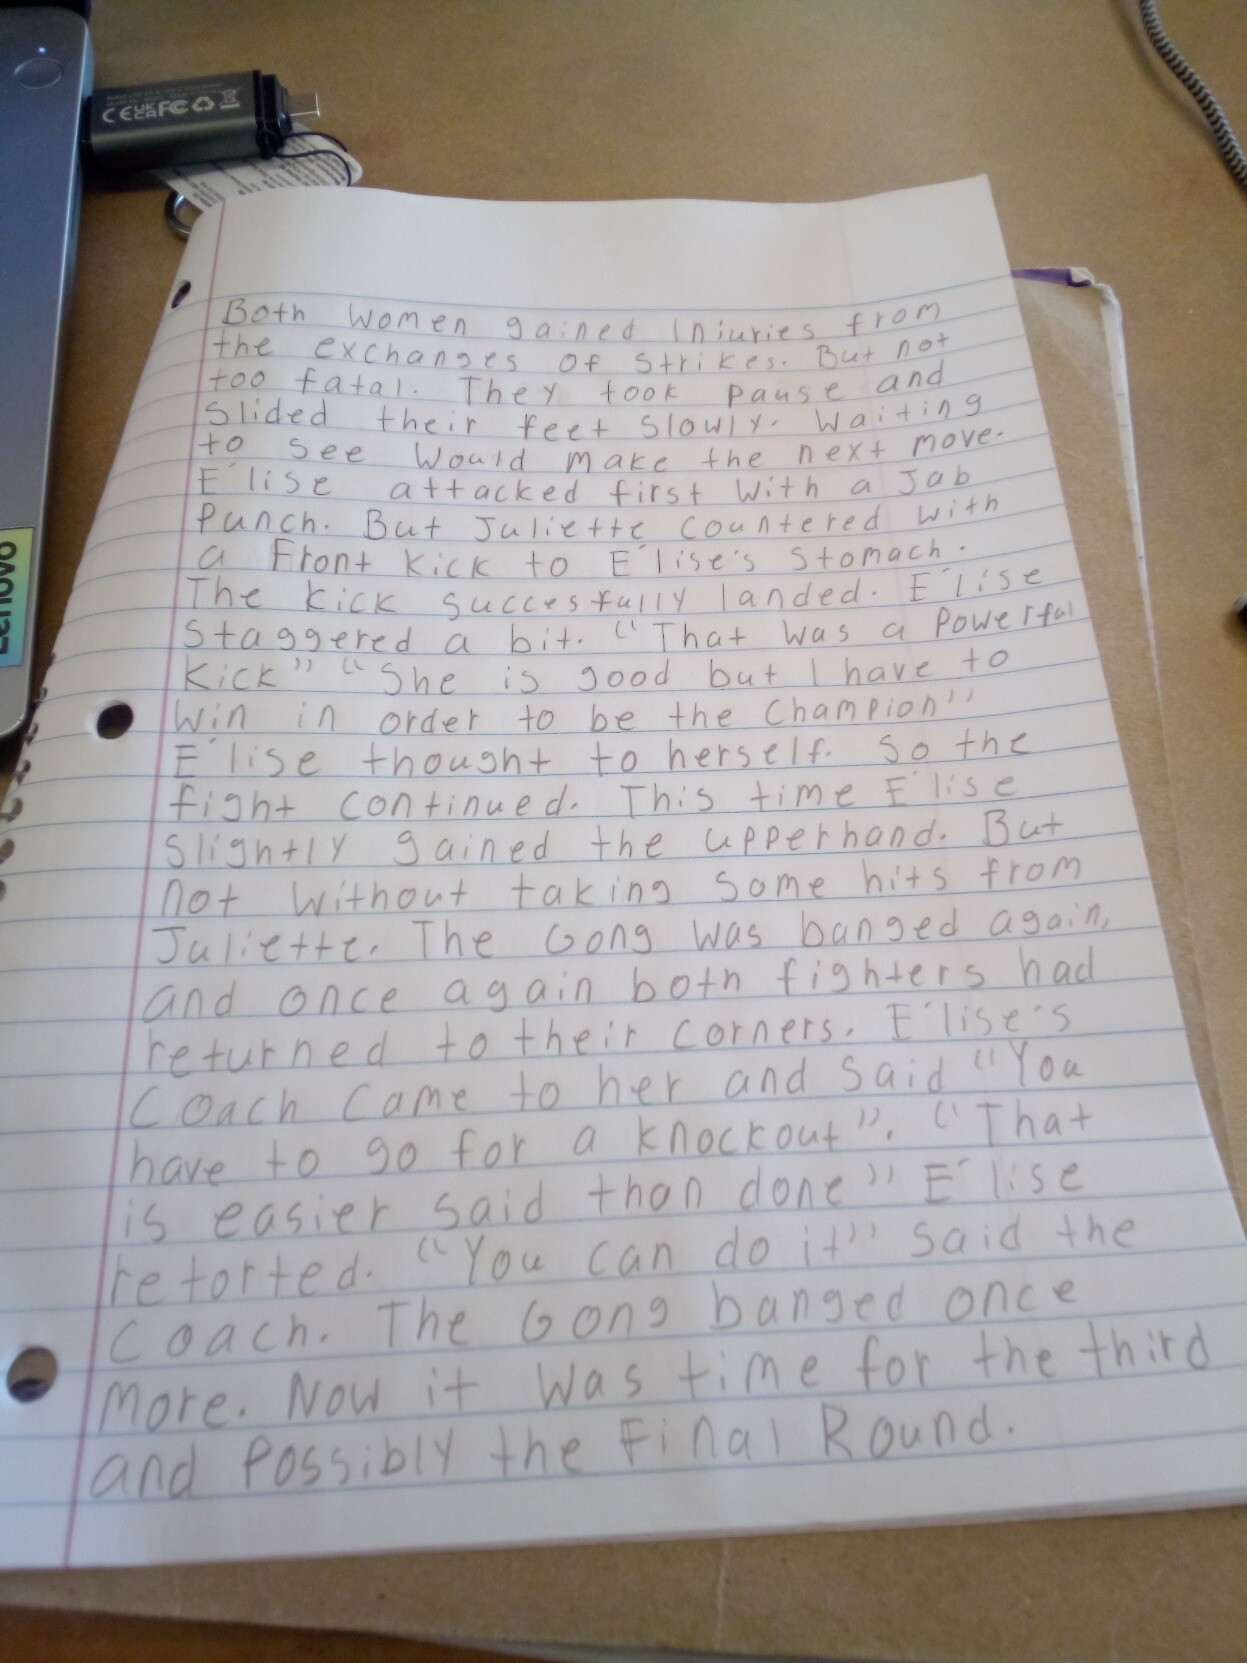 CE UK CA FC
Lenovo
Both Women gained Injuries from
the exchanges of Strikes. But not
too fatal. They took pause and
Slided their feet Slowly. Waiting
to see Would make the next move.
E'lise attacked first With a Jab
Punch. But Juliette Countered With
a Front Kick to E'lise's Stomach.
The kick succesfully landed. E'lise
Staggered a bit. "That was a Powerful
Kick" "She is good but I have to
Win in order to be the Champion"
E'lise thought to herself. So the
fight continued. This time E'lise
Slightly gained the upperhand. But
not Without taking Some hits from
Juliette. The Gong was banged again,
and once again both fighters had
returned to their corners. E'lise's
Coach Came to her and Said "You
have to go for a knockout". "That
is easier said than done" E'lise
retorted. "You can do it" Said the
Coach. The Gong banged once
More. Now it Was time for the third
and Possibly the Final Round.